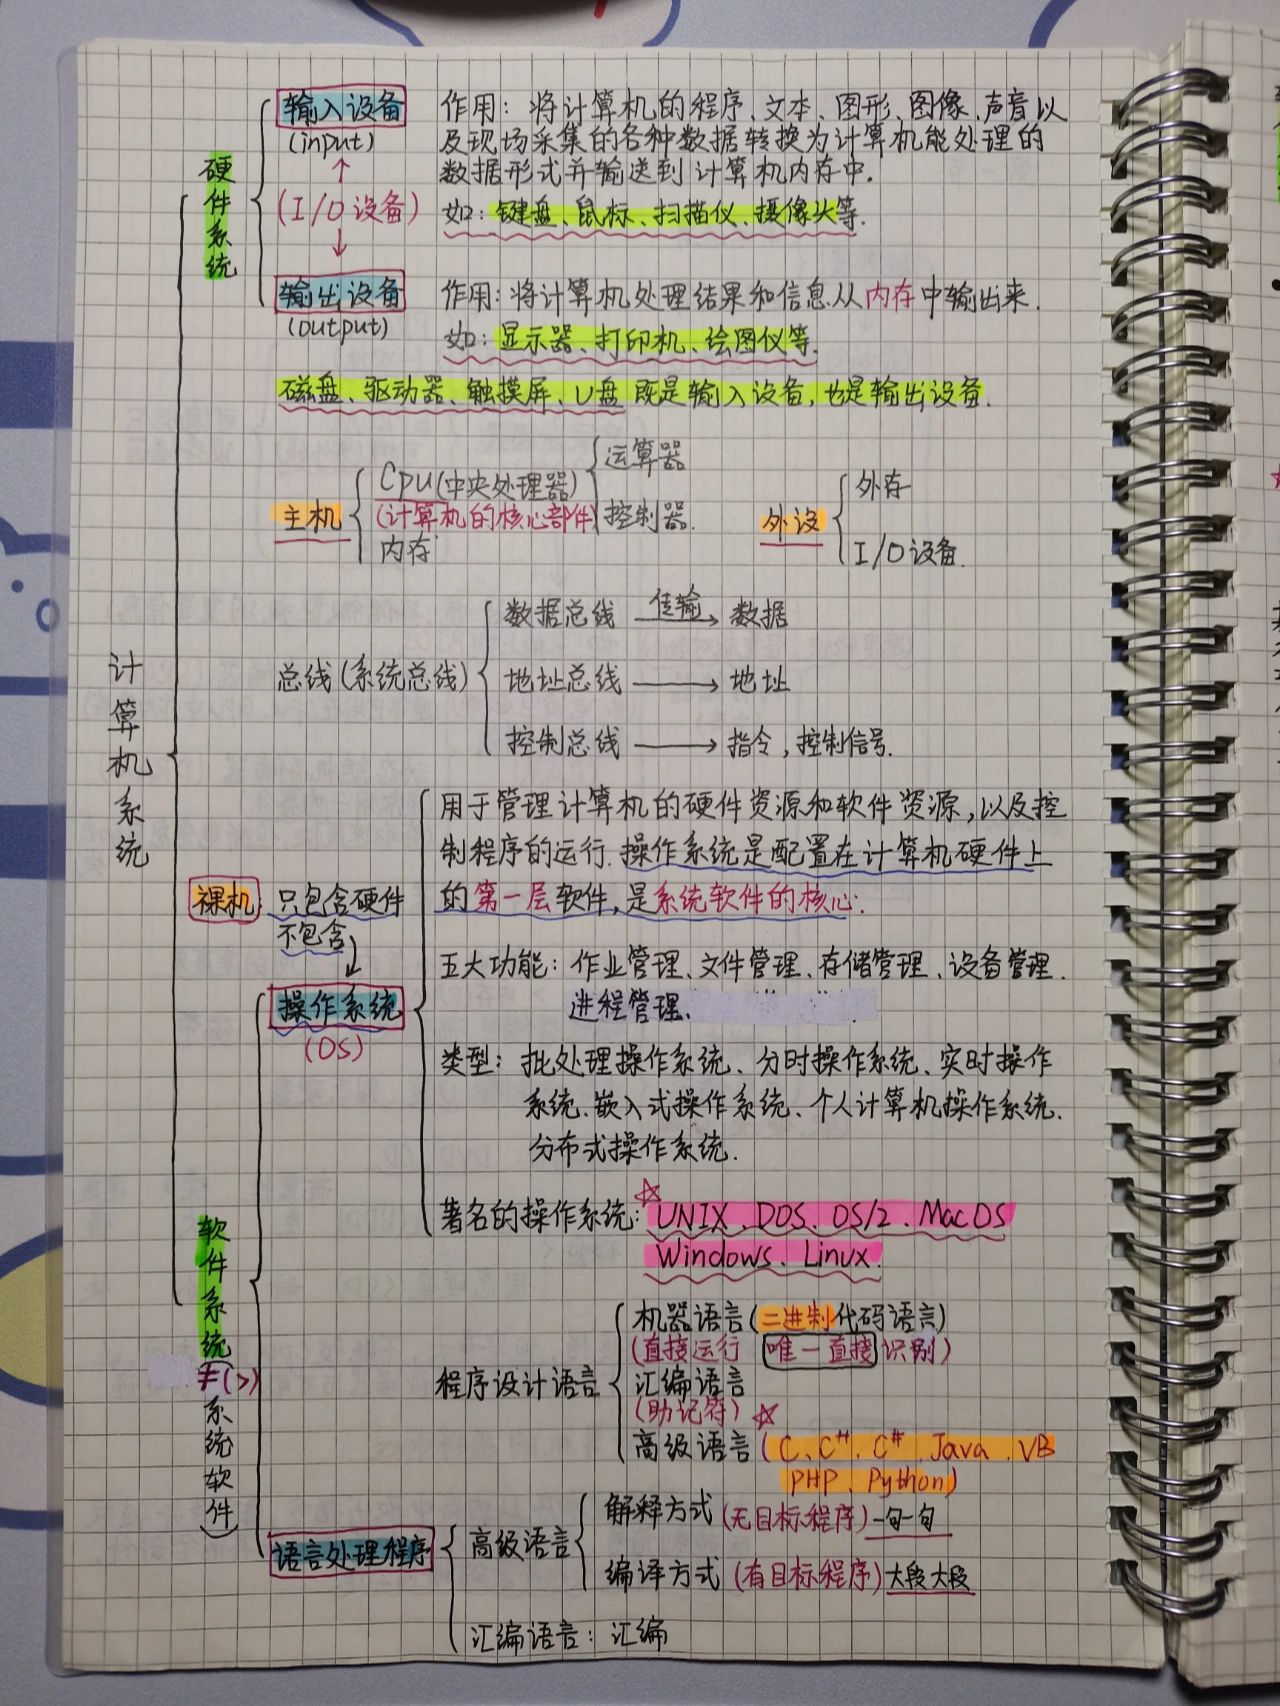 计算机系统
硬件系统
输入设备
(input)
(I/O 设备)
输出设备
(output)
作用：将计算机的程序、文本、图形、图像、声音以
及现场采集的各种数据转换为计算机能处理的
数据形式并输送到计算机内存中.
如：键盘、鼠标、扫描仪、摄像头等.
作用：将计算机处理结果和信息从内存中输出来.
如：显示器、打印机、绘图仪等.
磁盘、驱动器、触摸屏、U盘 既是输入设备，也是输出设备.
主机
Cpu(中央处理器)
(计算机的核心部件)
内存
运算器
控制器.
外设
外存
I/O 设备.
总线(系统总线)
数据总线 传输 数据
地址总线 地址
控制总线 指令，控制信号.
裸机：只包含硬件
不包含
操作系统
(OS)
用于管理计算机的硬件资源和软件资源，以及控
制程序的运行.操作系统是配置在计算机硬件上
的第一层软件，是系统软件的核心.
五大功能：作业管理、文件管理、存储管理、设备管理.
进程管理.
类型：批处理操作系统、分时操作系统、实时操作
系统、嵌入式操作系统、个人计算机操作系统.
分布式操作系统.
著名的操作系统：UNIX、DOS、OS/2、MacOS
Windows、Linux.
软件系统
≠(>)
系统软件)
程序设计语言
机器语言(二进制代码语言)
(直接运行 唯一直接识别)
汇编语言
(助记符)
高级语言(C、C++、C#、Java、VB
PHP、Python)
语言处理程序
高级语言
解释方式(无目标程序)一句一句
编译方式(有目标程序)大段大段
汇编语言：汇编